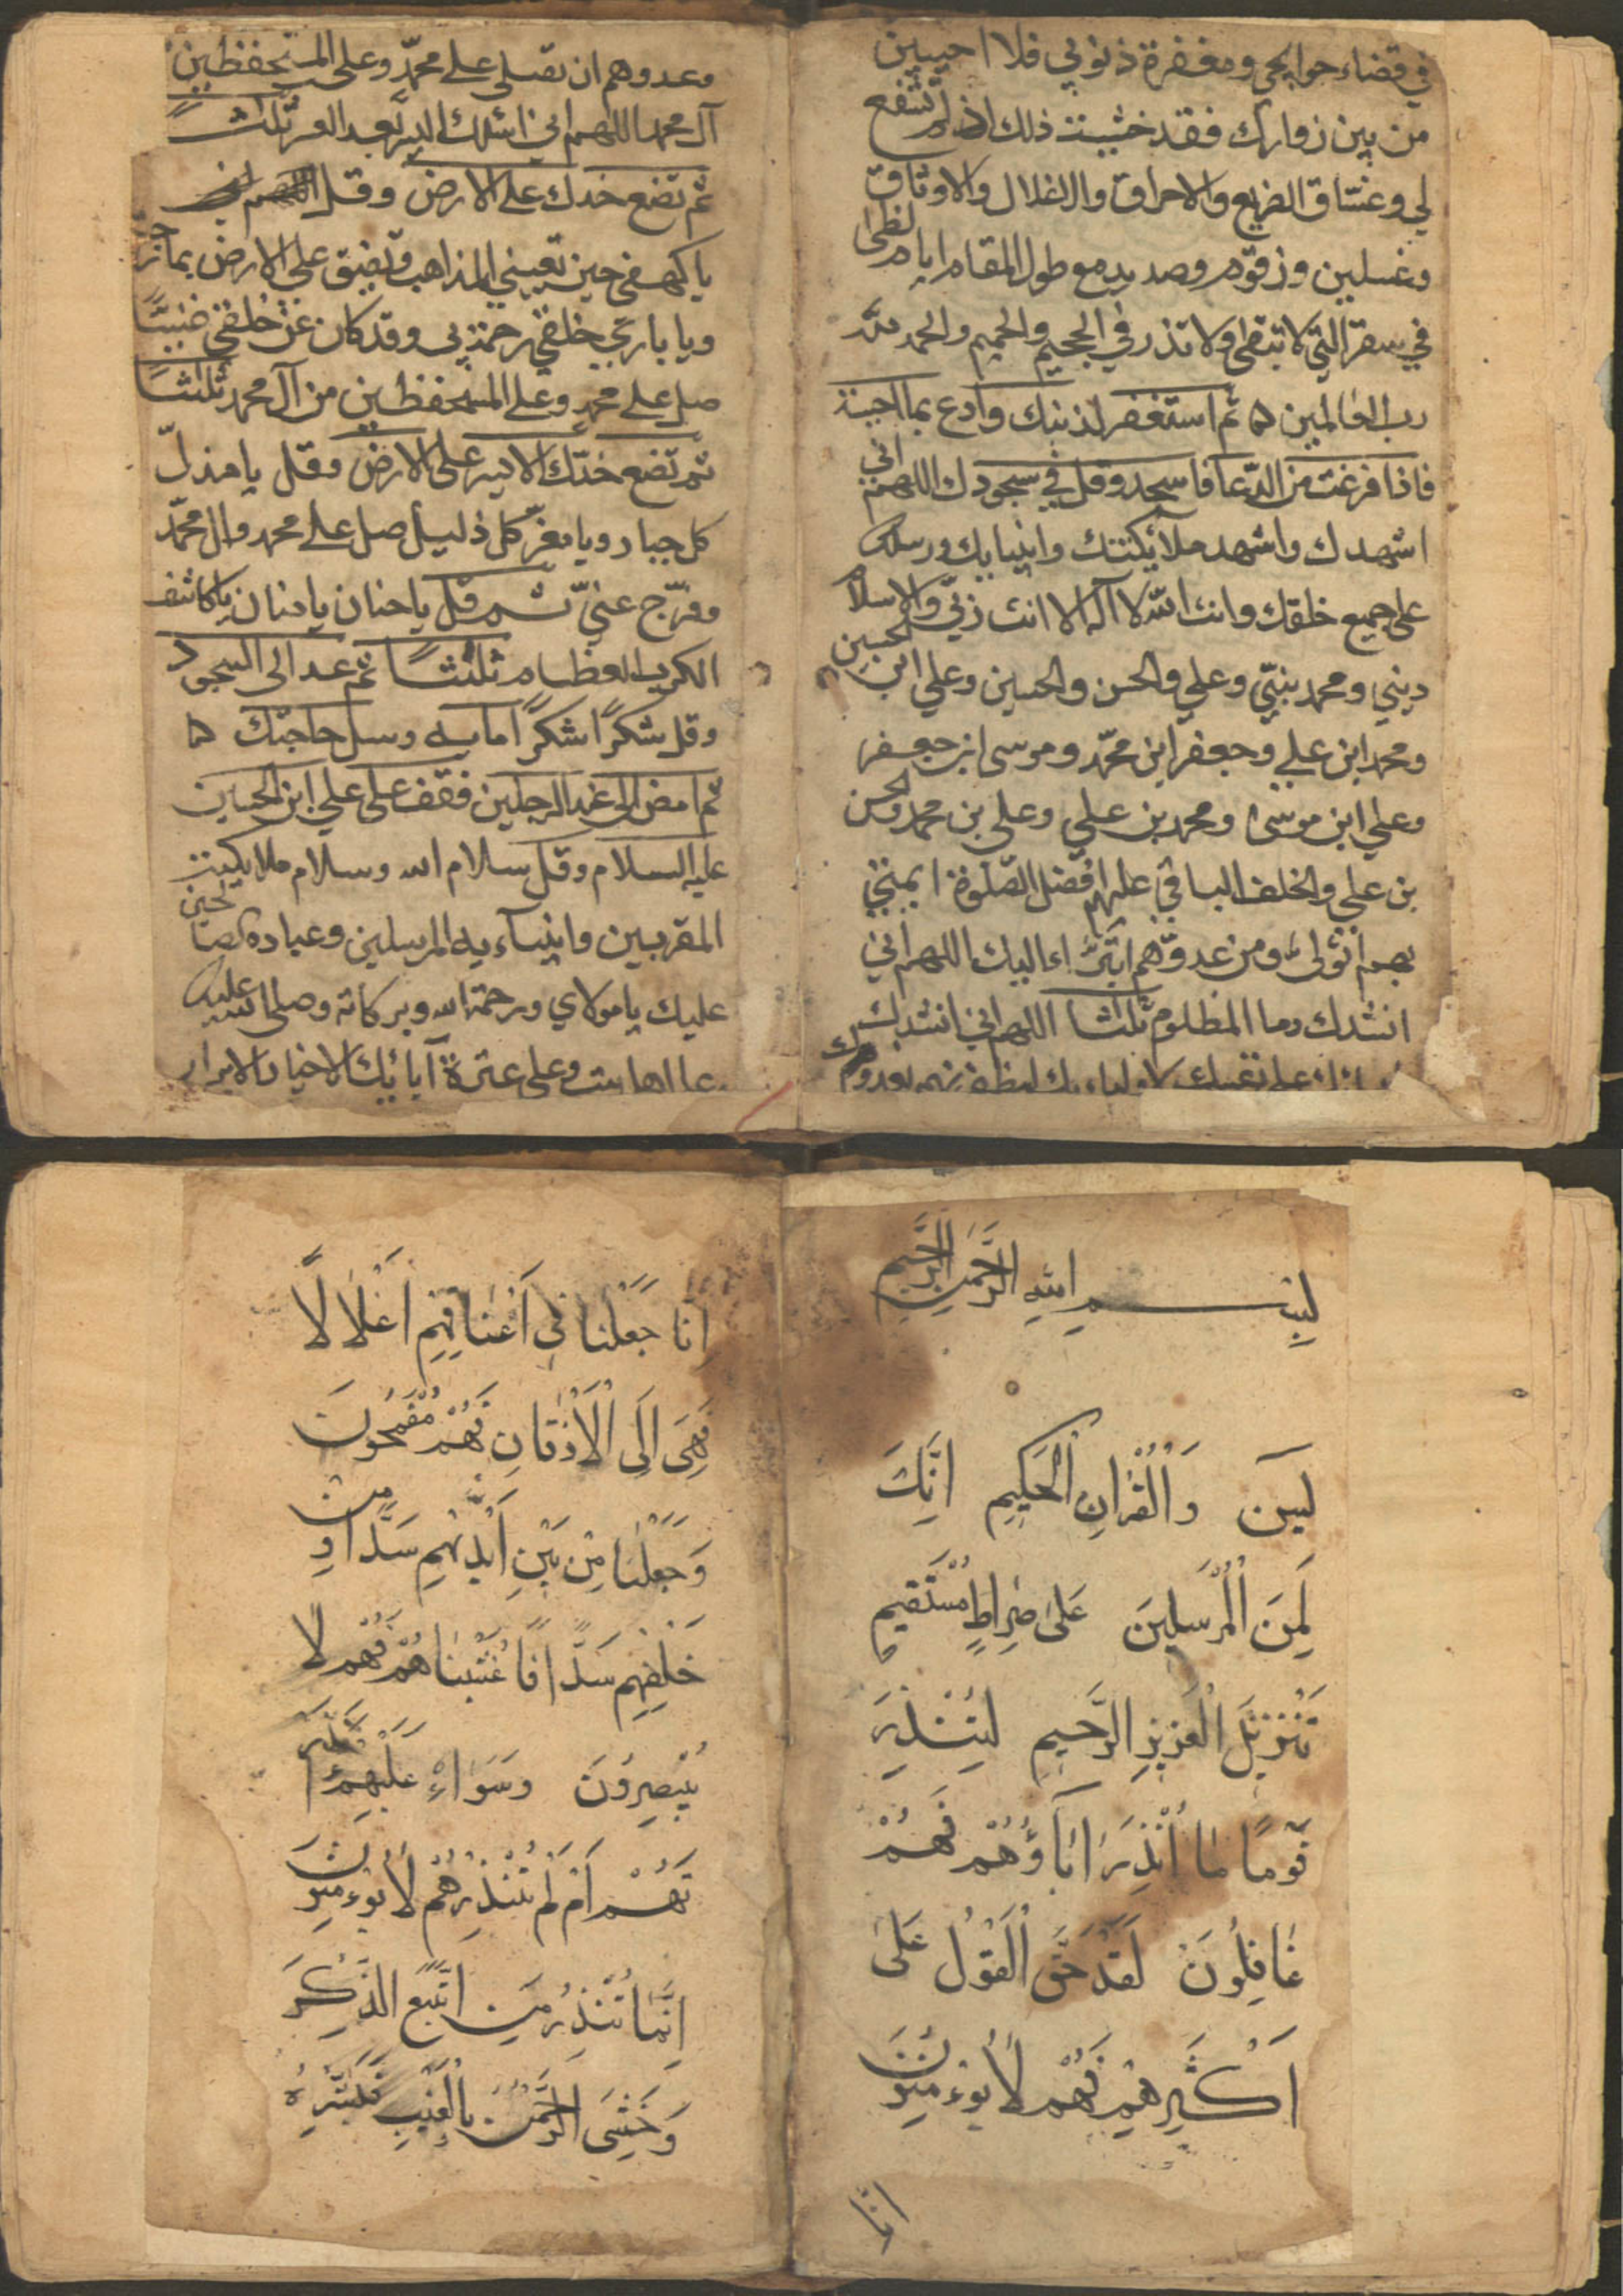 في قضاء حوايجي ومغفرة ذنوبي فلا اخيبن
من بين زوارك فقد خشيت ذلك ان لم تشفع
لي وعتناق الضريع والاحراق والاغلال والاوثاق
وغسلين وزقوم وصديد مع طول المقام ايام لظى
في سقر التي لا تبقي ولا تذر في الجحيم والحميم والحمد لله
رب العالمين ثم استغفر لذنبك وادع بما احببت
فاذا فرغت من الدعا فاسجد وقل في سجودك اللهم اني
اشهدك واشهد ملائكتك وانبيايك ورسلك
على جميع خلقك وانت الله لا اله الا انت ربي والاسلام
ديني ومحمد نبيي وعلي والحسن والحسين وعلي ابن الحسين
ومحمد ابن علي وجعفر ابن محمد وموسى ابن جعفر
وعلي ابن موسى ومحمد بن علي وعلي بن محمد والحسن
بن علي والخلف الباقي عليهم افضل الصلوة ايمتي
بهم اتولى ومن عدوهم اتبراء اليك اللهم اني
انشدك دما المظلوم ثلاثا اللهم اني انشدك
على نفسك لاوليايك لتظفرنهم بعدوك
وعدوهم ان تصلي على محمد وعلى المستحفظين
آل محمد اللهم اني اسئلك اليسر بعد العسر ثلاثا
ثم تضع خدك على الارض وقل
يا كهفي حين تعييني المذاهب وتضيق علي الارض بما رحبت
ويا باريء خلقي رحمة بي وقد كان عن خلقي غنيا
صل على محمد وعلى المستحفظين من آل محمد ثلثا
ثم تضع خدك الايسر على الارض وقل يا مذل
كل جبار ويا معز كل ذليل صل على محمد وال محمد
وفرج عني ثم قل يا حنان يا منان يا كاشف
الكرب العظام ثلثا ثم عد الى السجود
وقل شكرا شكرا مايه وسل حاجتك
ثم امض الى عند الرجلين فقف على علي ابن الحسين
عليه السلام وقل سلام الله وسلام ملايكته
المقربين وانبيآءيه المرسلين وعباده الصالحين
عليك يا مولاي ورحمة الله وبركاته وصلى الله عليك
وعلى اهل بيتك وعلى عترة آبائك الاخيار الابرار
بِسْمِ اللهِ الرَّحْمنِ الرَّحِيمِ
يسَن وَالْقُرْانِ الْحَكِيمِ اِنَّكَ
لَمِنَ الْمُرْسَلِينَ عَلى صِرَاطٍ مُسْتَقِيمٍ
تَنْزِيْلَ الْعَزِيزِ الرَّحِيمِ لِتُنْذِرَ
قَوْمًا مَا اُنْذِرَ اٰبَاؤُهُمْ فَهُمْ
غَافِلُونَ لَقَدْ حَقَّ الْقَوْلُ عَلى
اَكْثَرِهِمْ فَهُمْ لَا يُوءْمِنُونَ
انّا
اِنّا جَعَلْنا فِي اَعْناقِهِمْ اَغْلَالًا
فَهِيَ اِلَى الْاَذْقَانِ فَهُمْ مُقْمَحُونَ
وَجَعَلْنَا مِنْ بَيْنِ اَيْدِيْهِمْ سَدًّا وَمِنْ
خَلْفِهِمْ سَدًّا فَاَغْشَيْنَاهُمْ فَهُمْ لَا
يُبْصِرُونَ وَسَوَاءٌ عَلَيْهِمْ ءَاَنْذَرْ
تَهُمْ اَمْ لَمْ تُنْذِرْهُمْ لَا يُوءْمِنُونَ
اِنَّمَا تُنْذِرُ مَنِ اتَّبَعَ الذِّكْرَ
وَخَشِيَ الرَّحْمنَ بِالْغَيْبِ فَبَشِّرْهُ